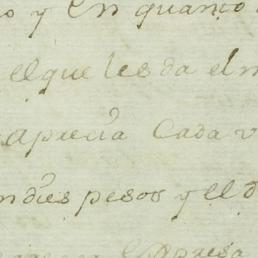 o y en quanto
el que les da el m
aprecia Cada v
n dies pesos y el d